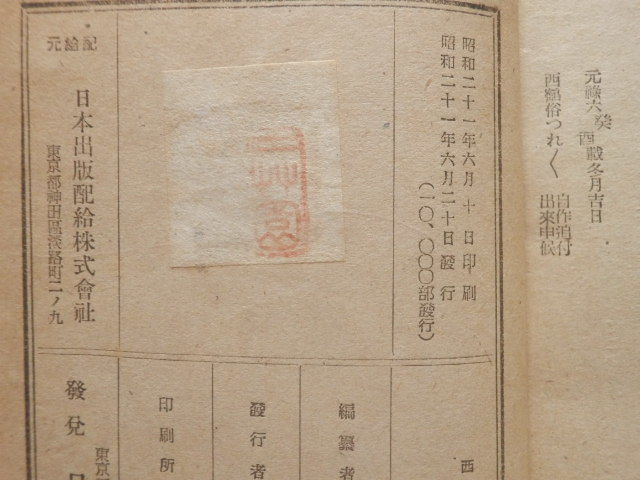 元祿六癸酉載冬月吉日
西鶴俗つれ〴〵
自作追付
出來申候
昭和二十一年六月十日印刷
昭和二十一年六月二十日發行
（一〇、〇〇〇部發行）
配給元
日本出版配給株式會社
東京都神田區淡路町二ノ九
西
編纂者
發行者
印刷所
東京
發兌